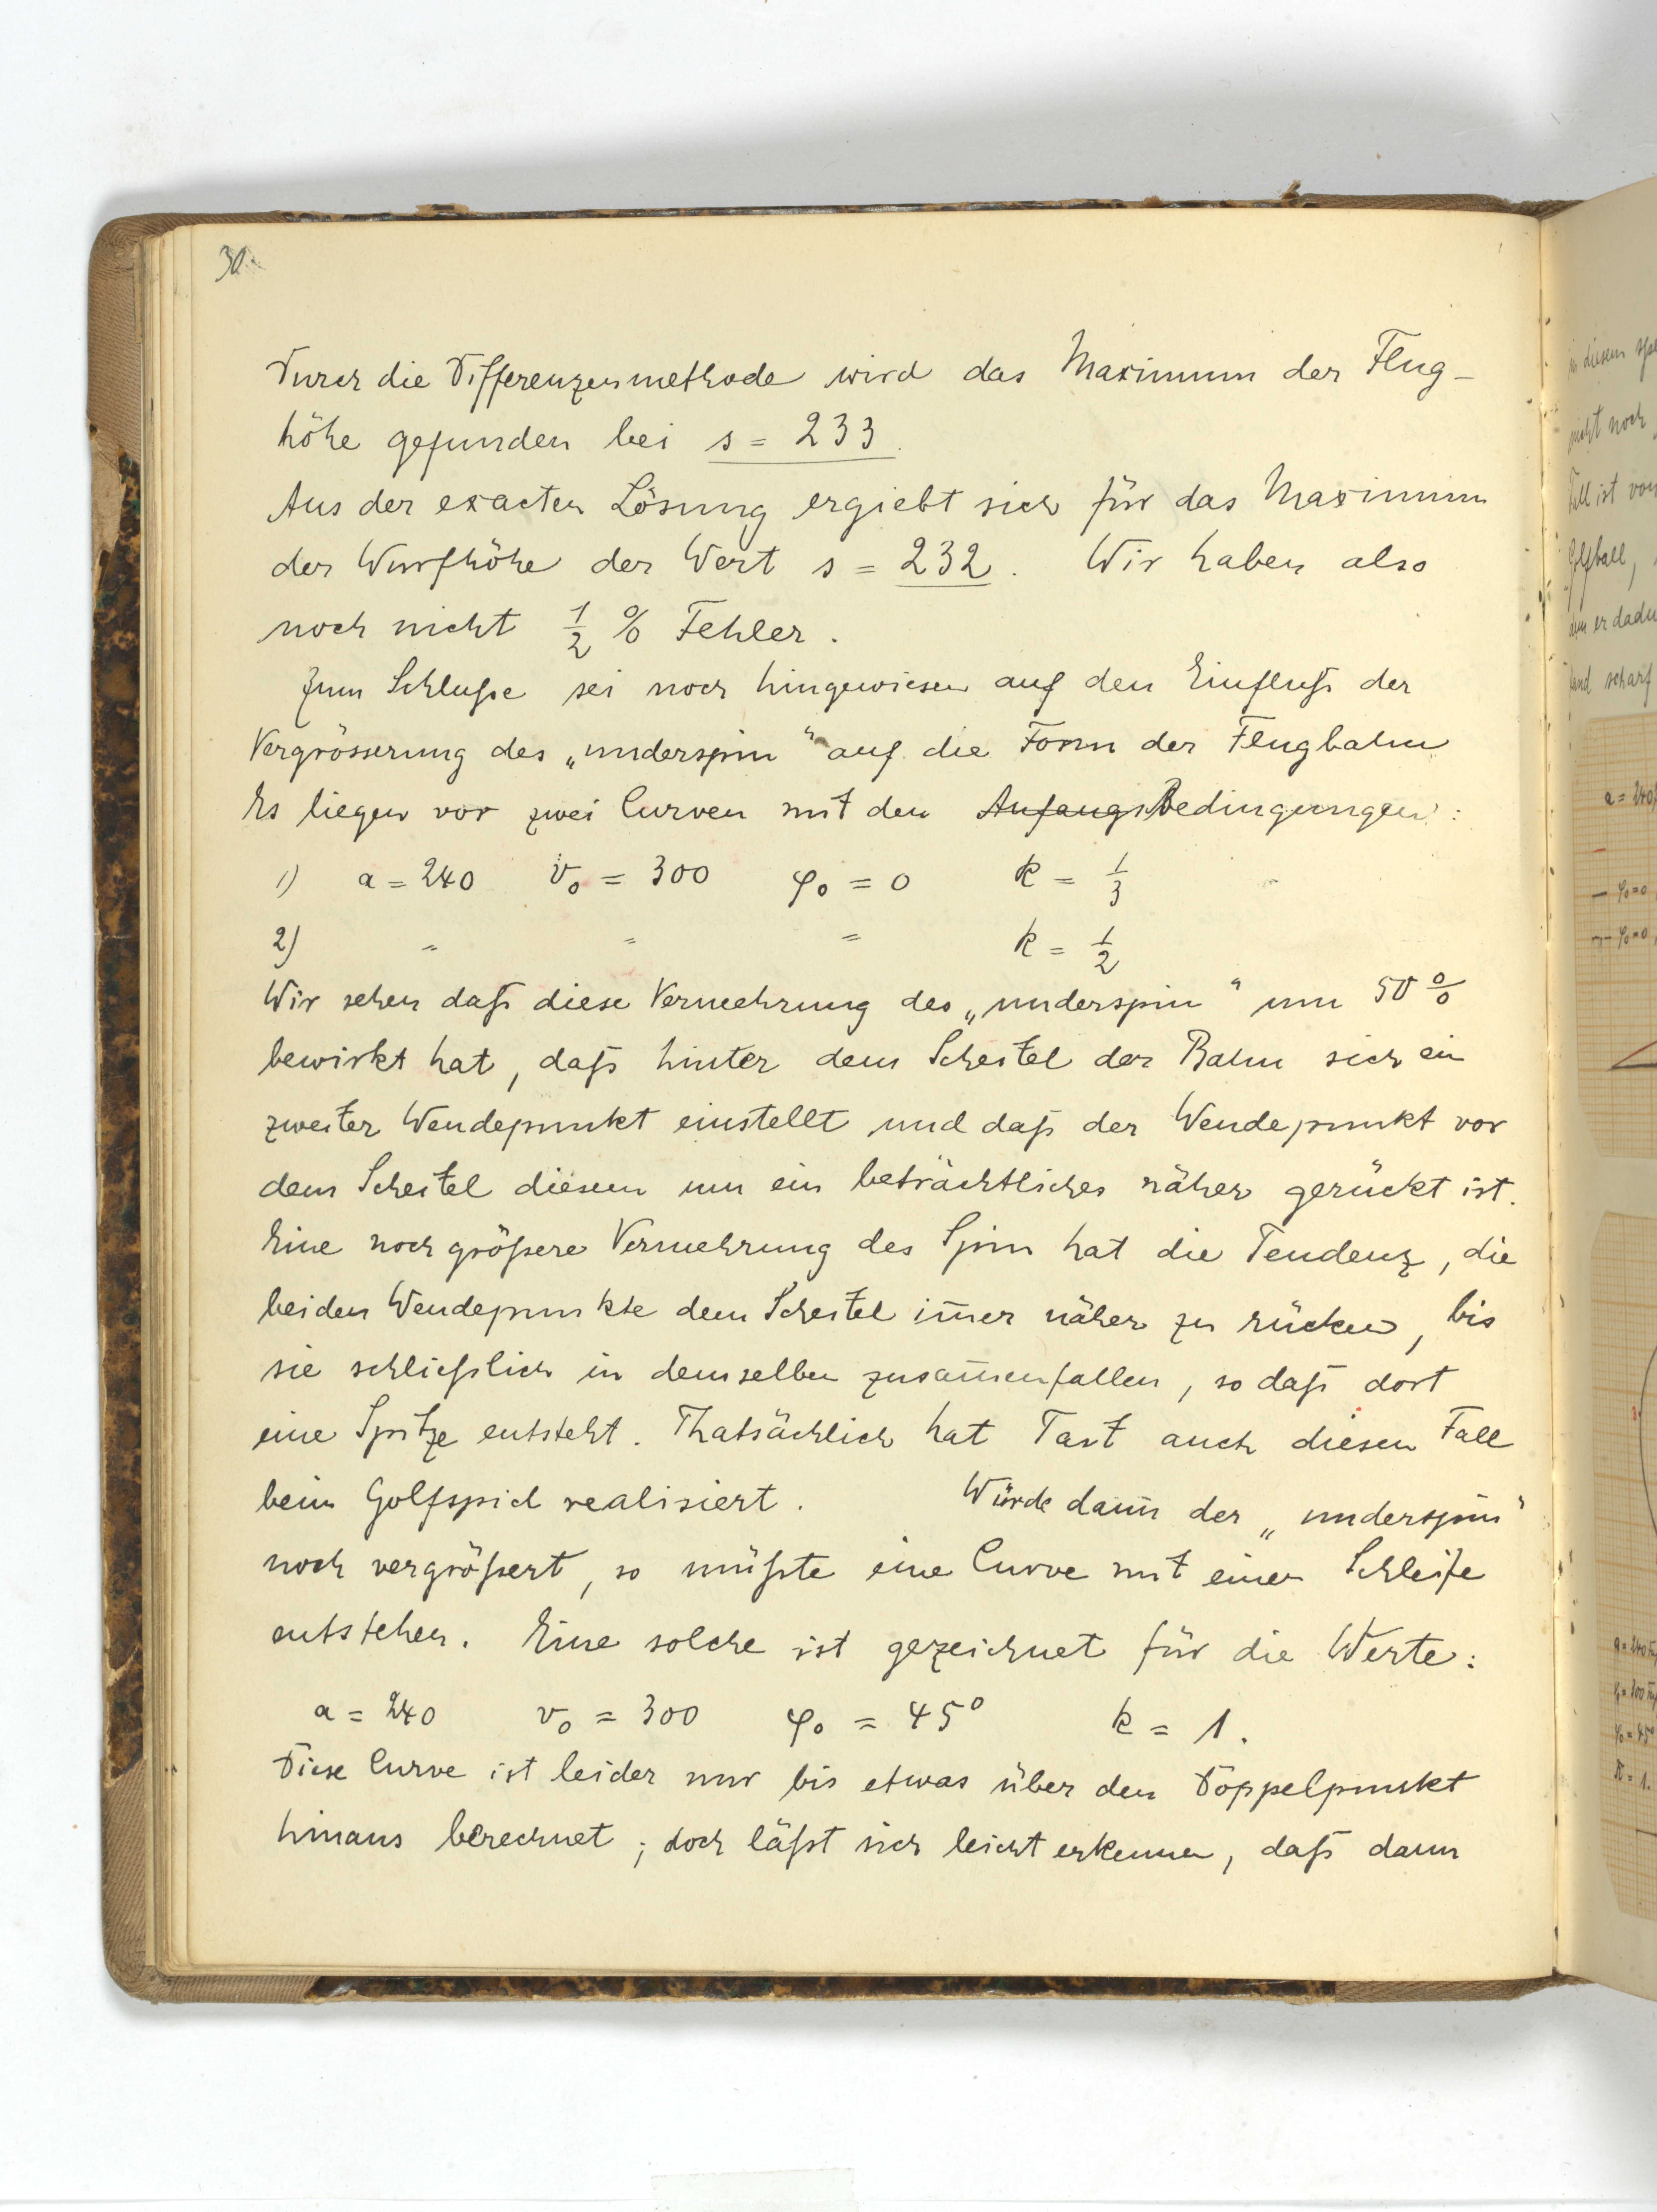 30.
Durch die Differenzenmethode wird das Maximum der Flug-
höhe gefunden bei s = 233.
Aus der exacten Lösung ergiebt sich für das Maximum
der Wurfhöhe der Wert s = 232. Wir haben also
noch nicht 1/2 % Fehler.
Zum Schluße sei noch hingewiesen auf den Einfluß der
Vergrösserung des „underspin“ auf die Form der Flugbahn
Es liegen vor zwei Curven mit den Anfangs Bedingungen:
1) a = 240 v₀ = 300 φ₀ = 0 k = 1/3
2) " " = k = 1/2
Wir sehen daß diese Vermehrung des „underspin“ um 50 %
bewirkt hat, daß hinter dem Scheitel der Bahn sich ein
zweiter Wendepunkt einstellt und daß der Wendepunkt vor
dem Scheitel diesem um ein beträchtliches näher gerückt ist.
Eine noch größere Vermehrung des Spin hat die Tendenz, die
beiden Wendepunkte dem Scheitel im̄er näher zu rücken, bis
sie schließlich in demselben zusam̄enfallen, so daß dort
eine Spitze entsteht. Thatsächlich hat Tait auch diesen Fall
beim Golfspiel realisiert. Würde dan̄ der „underspin“
noch vergrößert, so müßte eine Curve mit einer Schleife
entstehen. Eine solche ist gezeichnet für die Werte:
a = 240 v₀ = 300 φ₀ = 45° k = 1.
Diese Curve ist leider nur bis etwas über den Doppelpunkt
hinaus berechnet; doch läßt sich leicht erkennen, daß dann
in diesem
nicht noch
Fall ist von
Golfball,
scharf
a = 240
φ₀=0
φ₀=0
a = 240
φ₀ = 45°
k = 1.